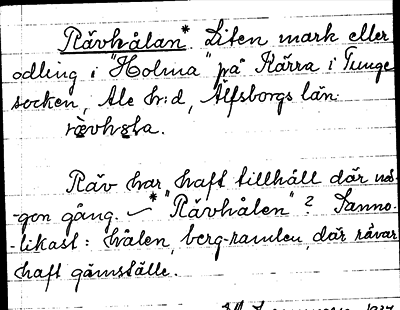 Rävhålan.* Liten mark eller
odling i "Holma" på Kärra i Tunge
socken, Ale h:d, Älfsborgs län.
Räv har haft tillhåll där nå-
-gon gång. — *"Rävhålen"? Sanno-
-likast: hålen, berg-ramlen, där rävar
haft gömställe.